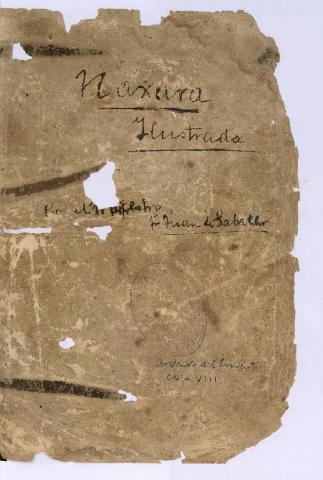 Naxara
Ilustrada
Por el
Fr Juan de Salazar
Archivo del Convento
Caja VIII